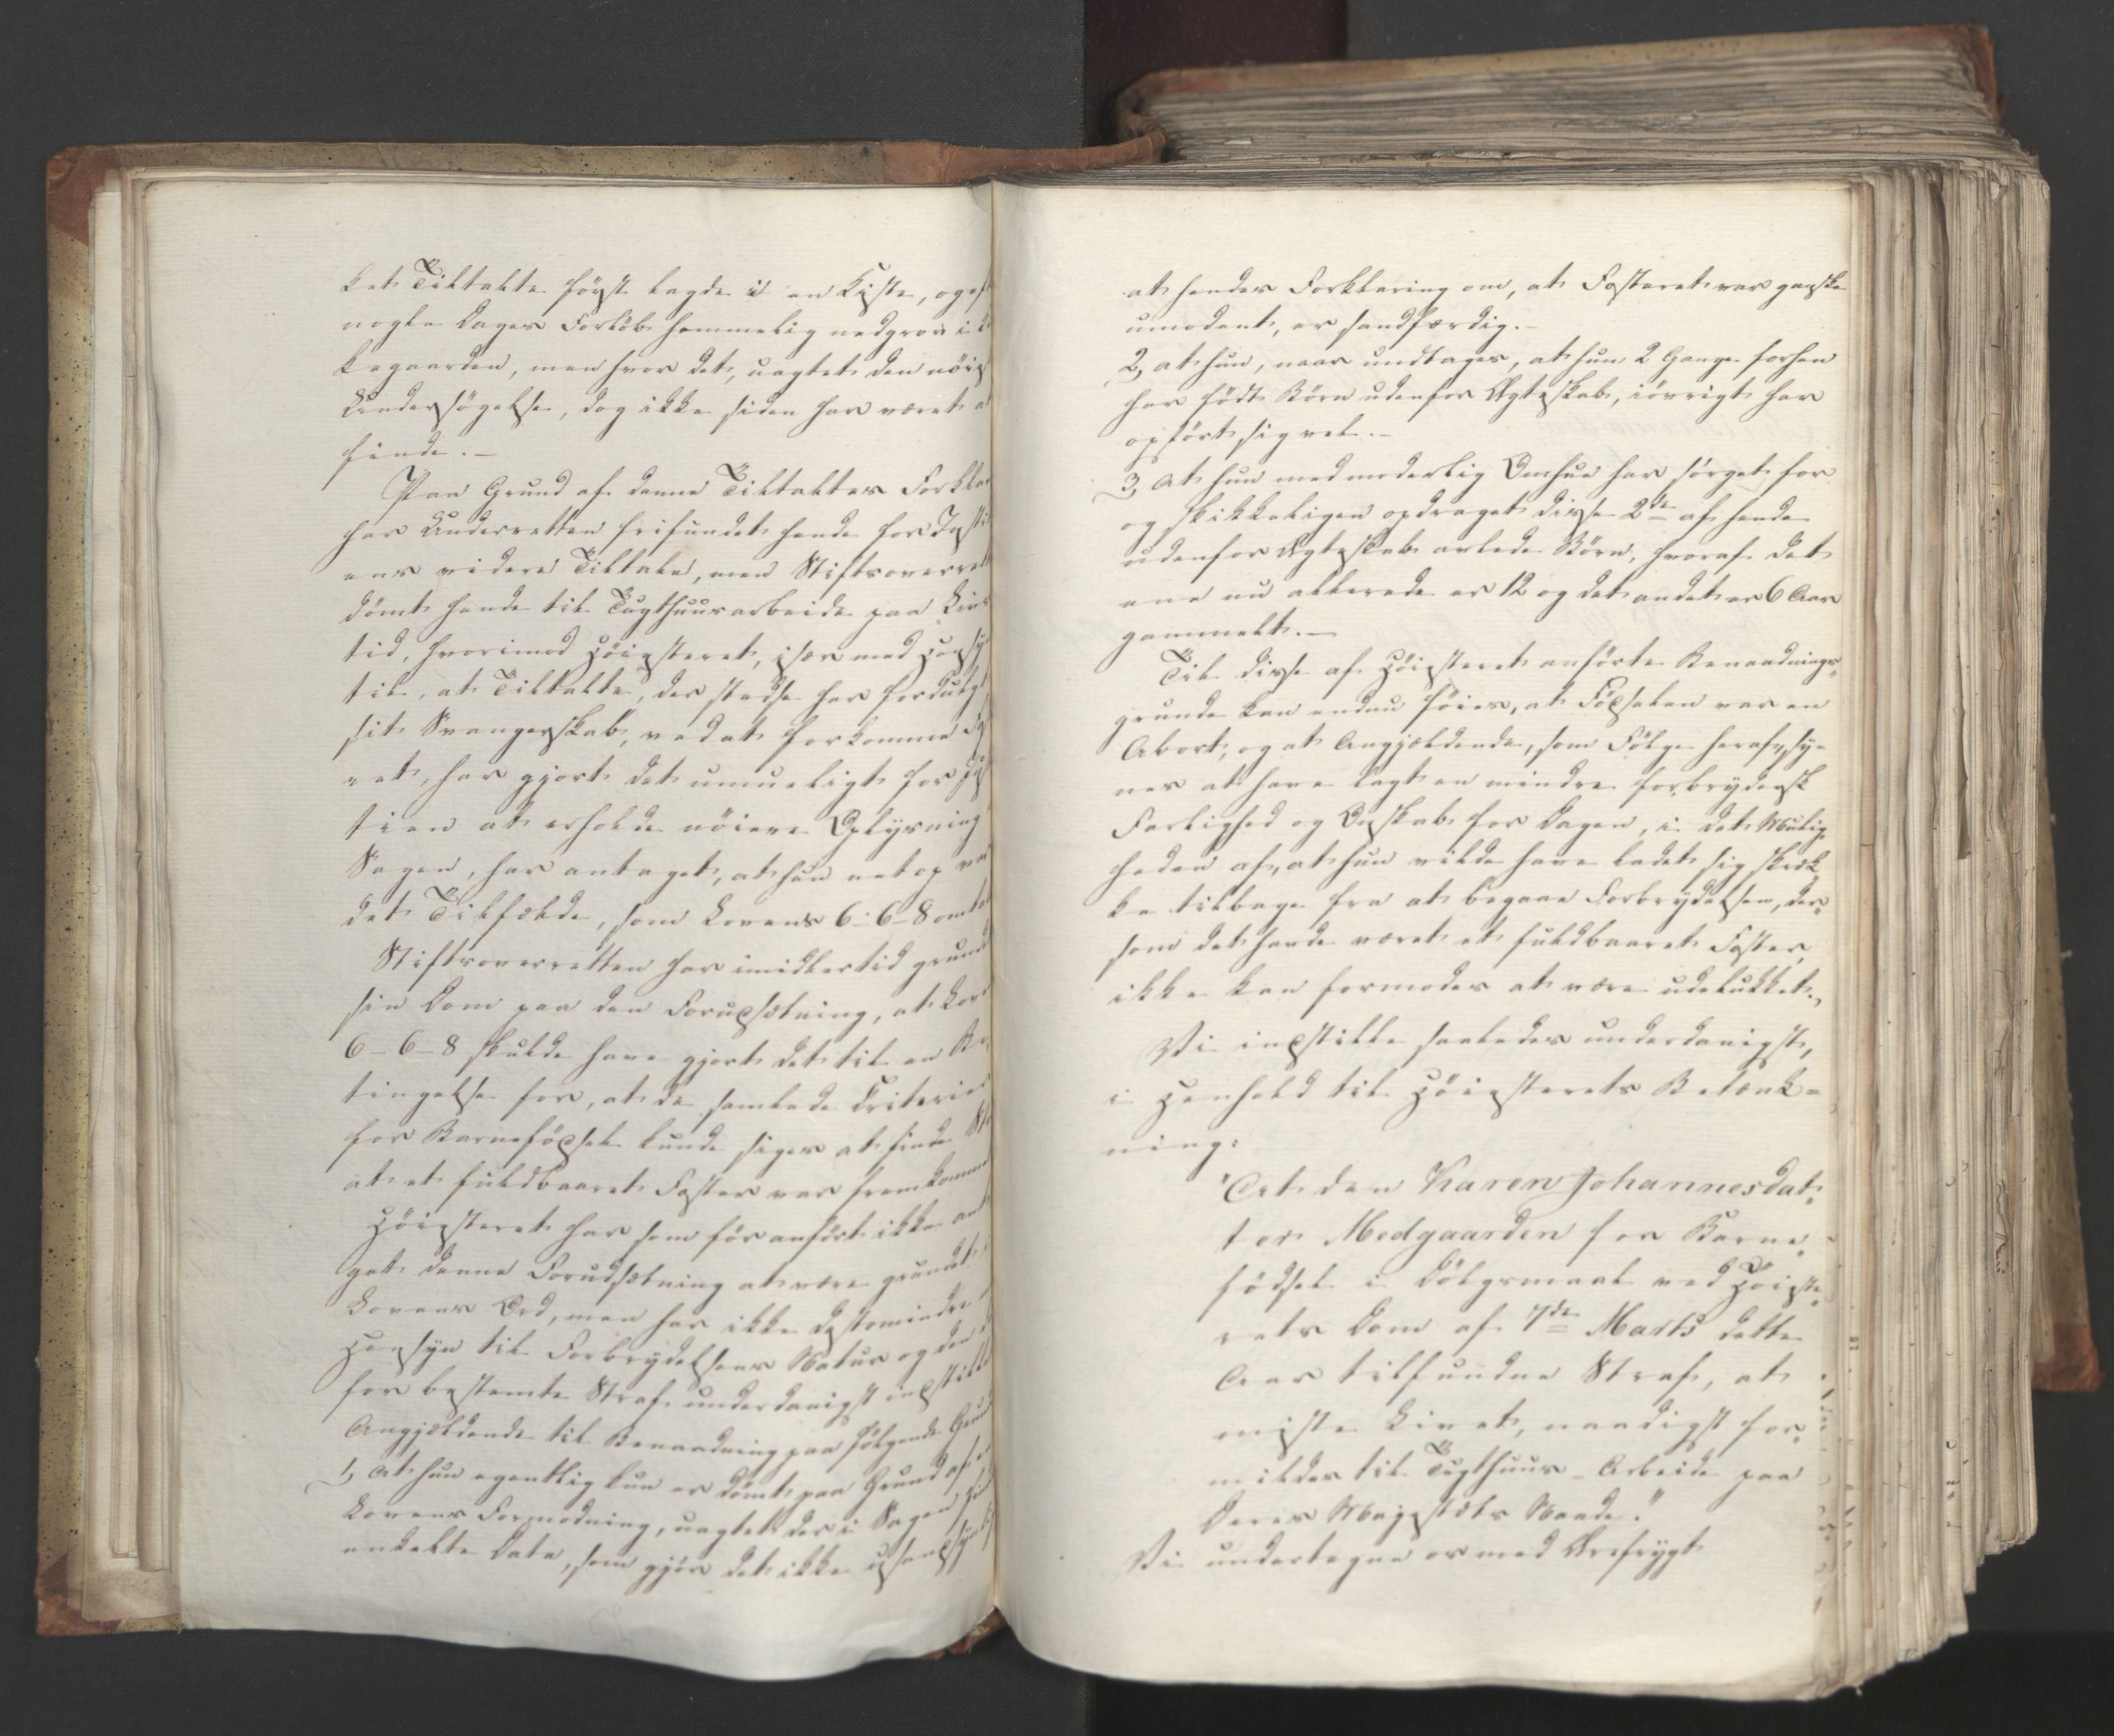 ket Tiltalte først lagde i en Kiste, og ef
nogle Dages Forløb hemmelig nedgrov i K
kegaarden, men hvor det, uagtet den nøig
Undersøgelse, dog ikke siden har været a
finde.-
Paa Grund af denne Tiltaltes Forkla
har Underretten frifundet hende for Justi
ens videre Tiltale, men Stiftsoverrett
dømt hende til Tugthuusarbeide paa Livs
tid, hvorimod Høiesteret, især med Hensy
til, at Tiltalte, der stedse har fordulgt
sit Svangerskab, ved at forkomme Fo
ret, har gjort det umueligt for Jus
tien at erholde nøiere Oplysning
Sagen, har antaget, at hun netop va
det Tilfælde, som Lovens 6-6-8 omta
Stiftsoverretten har imidlertid grund
sin Dom paa den Forudsætning, at Lov
6-6-8 skulde have gjort det til en Be
tingelse for, at de samlede Criterie
for Barnefødsel kunde siges at finde St
at et fuldbaaret Foster var fremkomme
Høiesteret har som før anført ikke anta
get denne Forudsætning at være grundet
Lovens Ord, men har ikke destomindre
Hensyn til Forbrydelsens Natur og den
for bestemte Straf underdanigst indstillet
Angjældende til Benaadning paa følgende Grund
1, At hun egentlig kun er dømt paa Grund af
Lovens Formodning, uagtet der i Sagen find
enkelte Data, som gjør det ikke usandsynli
at hendes Forklaring om, at Fosteret var ganske
umodent, er sandfærdig.-
2, at hun, naar undtages, at hun 2 Gange forhen
har født Børn udenfor Ægteskab, iøvrigt har
opført sig vel.-
3, At hun med moderlig Omhue har sørget for
og skikkeligen opdraget disse 2de af hende
udenfor Ægteskab avlede Børn, hvoraf det
ene nu allerede er 12 og det andet er 6 Aar
gammelt.-
Til disse af Høiesteret anførte Benaadnings-
grunde kan endnu føies, at Fødselen var en
Abort, og at Angjældende, som Følge heraf, sy-
nes at have lagt en mindre forbrydersk
Færlighed og Ondskab for Dagen, i det Mulig-
heden af, at hun vilde have ladet sig skræk-
ke tilbage fra at begaae Forbrydelsen, der-
som det havde været et fuldbaaret Foster,
ikke kan formodes at være udelukket.
Vi indstille saaledes underdanigst,
i Henhold til Høiesterets Betænk=
ning:
"At den Karen Johannesdat-
ter Medgaarden for Barne-
fødsel i Dølgsmaal ved Høieste-
rets Dom af 7de Marts dette
Aar tilfundne Straf, at
miste Livet, naadigst for-
mildes til Tugthuus-Arbeide paa
Deres Majestæts Naade."
Vi undertegne os med Ærefrygt